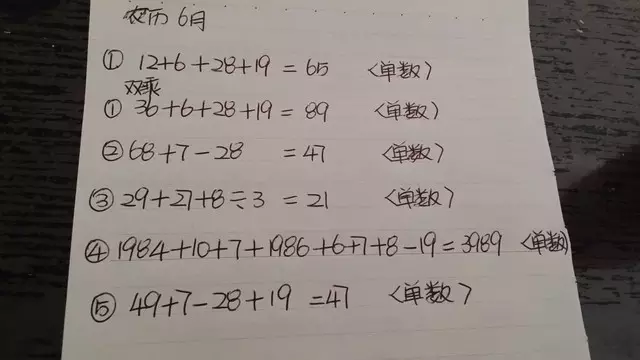 农历6月
① 12+6+28+19 = 65 〈单数〉
双乘
① 36+6+28+19 = 89 〈单数〉
② 68+7-28 = 47 〈单数〉
③ 29+27+8÷3 = 21 〈单数〉
④ 1984+10+7+1986+6+7+8-19=3989 〈单数〉
⑤ 49+7-28+19 =47 〈单数〉